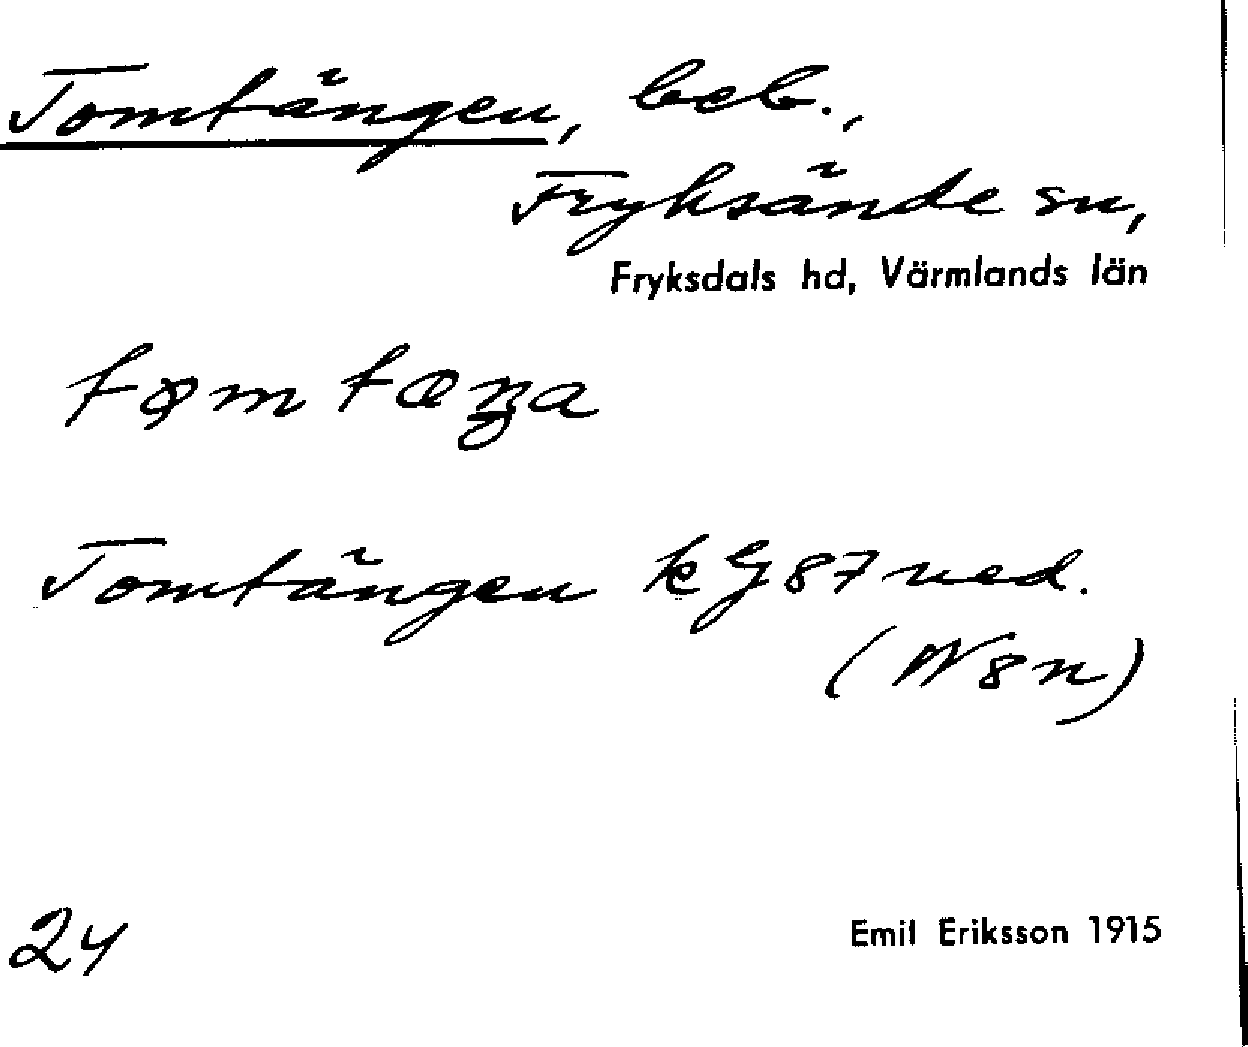 Tomtängen, beb.,
Fryksände sn,
Fryksdals hd, Värmlands län
tømtæŋa
Tomtängen kG87ned.
(N8n)
24
Emil Eriksson 1915